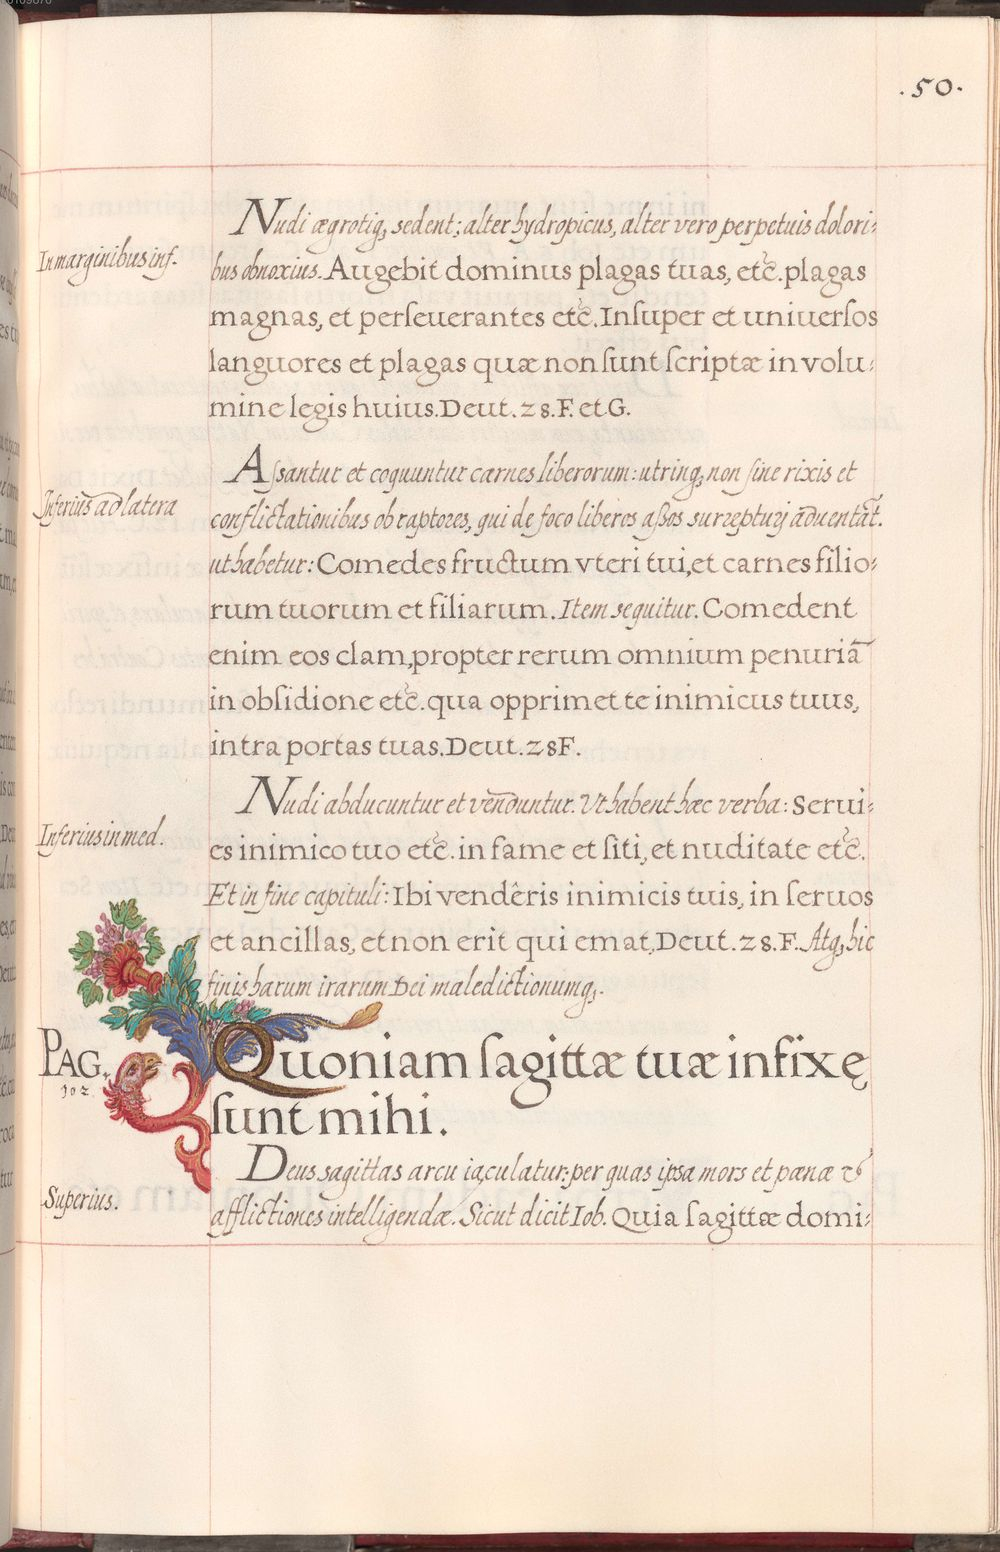 .50.
Nudi ægrotiq, sedent; alter hydropicus, alter vero perpetuis dolori⸗
In marginibus inf.
bus obnoxius. Augebit dominus plagas tuas, etc̃. plagas
magnas, et perseuerantes etc̃. Insuper et uniuersos
languores et plagas quæ non sunt scriptæ in volu⸗
mine legis huius. Deut. 28. F. et G.
Assantur et coquuntur carnes liberorum: utrinq, non sine rixis et
Inferius ad latera
conflictationibus ob raptores, qui de foco liberos assos surrepturj aduentãt.
ut habetur: Comedes fructum vteri tui, et carnes filio⸗
rum tuorum et filiarum. Item sequitur. Comedent
enim eos clam, propter rerum omnium penuriã
in obsidione etc̃. qua opprimet te inimicus tuus,
intra portas tuas. Deut. 28 F.
Nudi abducuntur et venduntur. Vt habent hæc verba: Serui⸗
Inferius in med.
es inimico tuo etc̃. in fame et siti, et nuditate etc̃.
Et in fine capituli: Ibi vendêris inimicis tuis, in seruos
et ancillas, et non erit qui emat, Deut. 28. F. Atq, hic
finis harum irarum Dei maledictionumq,.
PAG.
102.
Quoniam sagittæ tuæ infixę
sunt mihi.
Deus sagittas arcu iaculatur: per quas ipsa mors et pœnæ &
Superius.
afflictiones intelligendæ. Sicut dicit Iob. Quia sagittæ domi⸗